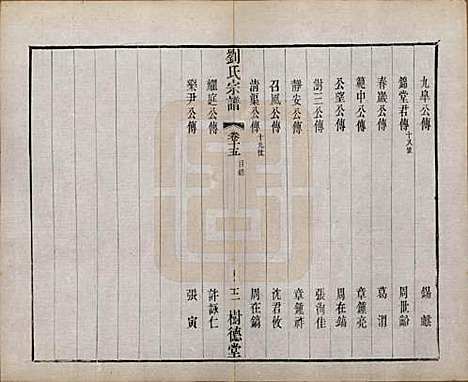 九臯公傳 錫麒
錦堂君傳 十八世 周世谿
春巖公傳 葛渭
範中公傳 章鍾亮
公望公傳 周在鎬
澍三公傳 張洵佳
靜安公傳 章鍾祚
召風公傳 沈君攸
清渠公傳 十九世 周在鎬
劉氏宗譜 卷十五 目錄 二 樹德堂
耀庭公傳 許詠仁
樂尹公傳 張寅